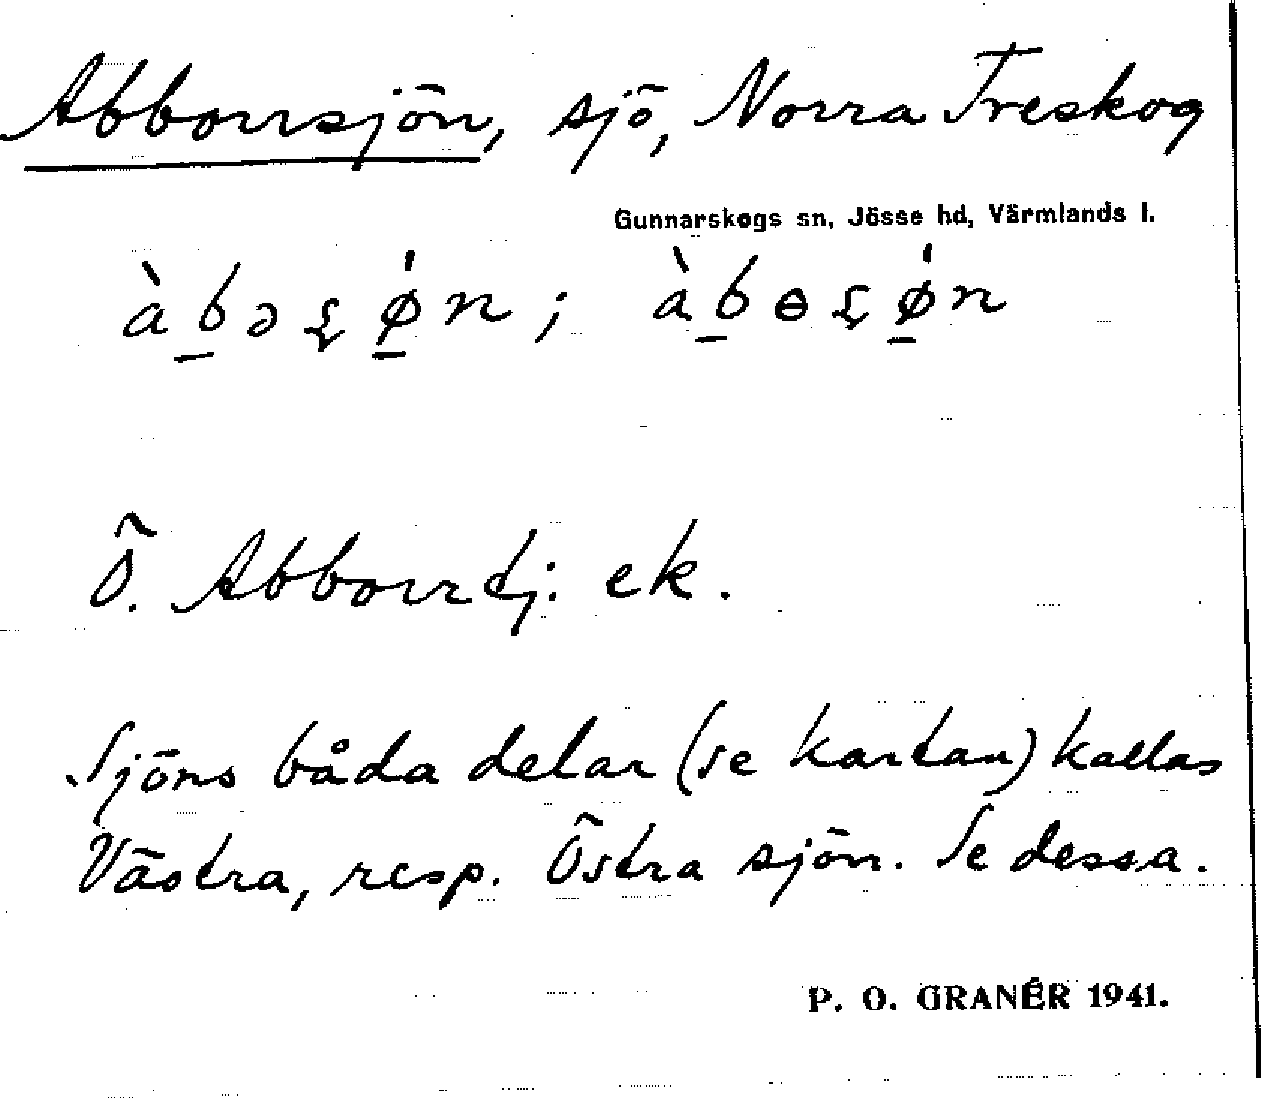 Abborrsjön, sjö, Norra Treskog
Gunnarskogs sn, Jösse hd, Värmlands l.
Ö. Abborrtj: ek.
Sjöns båda delar (se kartan) kallas
Västra, resp. Östra sjön. Se dessa.
P. O. GRANÉR 1941.